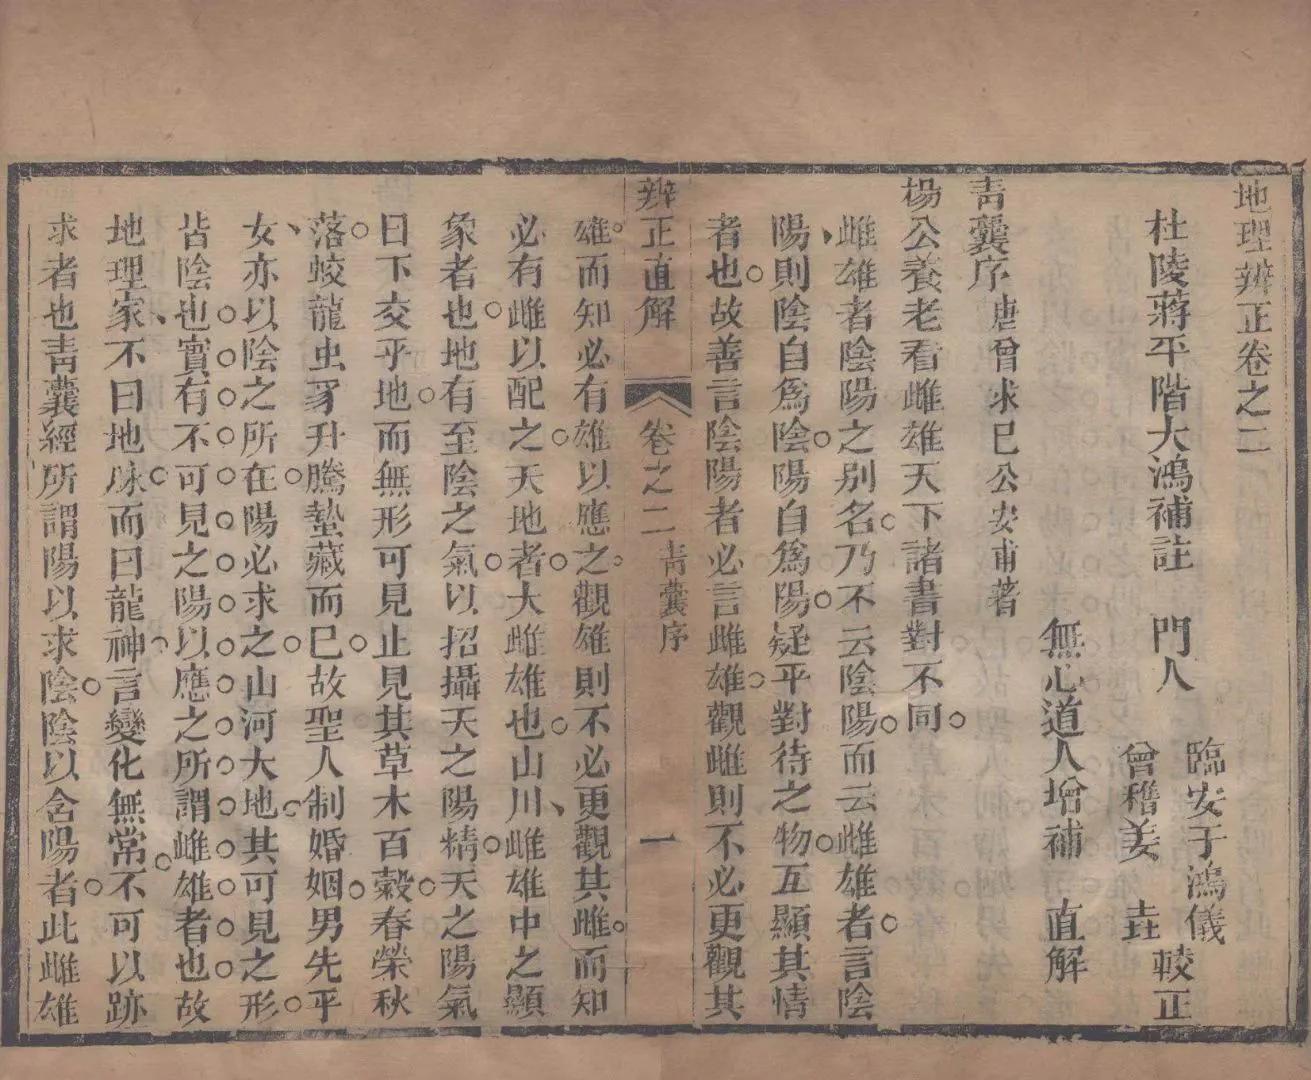 地理辨正卷之二
杜陵蔣平階大鴻補註 門人
臨安于鴻儀
會稽姜垚
較正
無心道人增補 直解
青囊序 唐曾求已公安甫著
楊公養老看雌雄天下諸書對不同
雌雄者陰陽之別名乃不云陰陽而云雌雄者言陰
陽則陰自爲陰陽自爲陽疑乎對待之物互顯其情
者也故善言陰陽者必言雌雄觀雌則不必更觀其
辨正直解 卷之二 青囊序 一
雄而知必有雄以應之觀雄則不必更觀其雌而知
必有雌以配之天地者大雌雄也山川雌雄中之顯
象者也地有至陰之氣以招攝天之陽精天之陽氣
日下交乎地而無形可見止見其草木百穀春榮秋
落蛟龍虫豸升騰蟄藏而已故聖人制婚姻男先乎
女亦以陰之所在陽必求之山河大地其可見之形
皆陰也實有不可見之陽以應之所謂雌雄者也故
地理家不曰地脉而曰龍神言變化無常不可以跡
求者也青囊經所謂陽以求陰陰以含陽者此雌雄